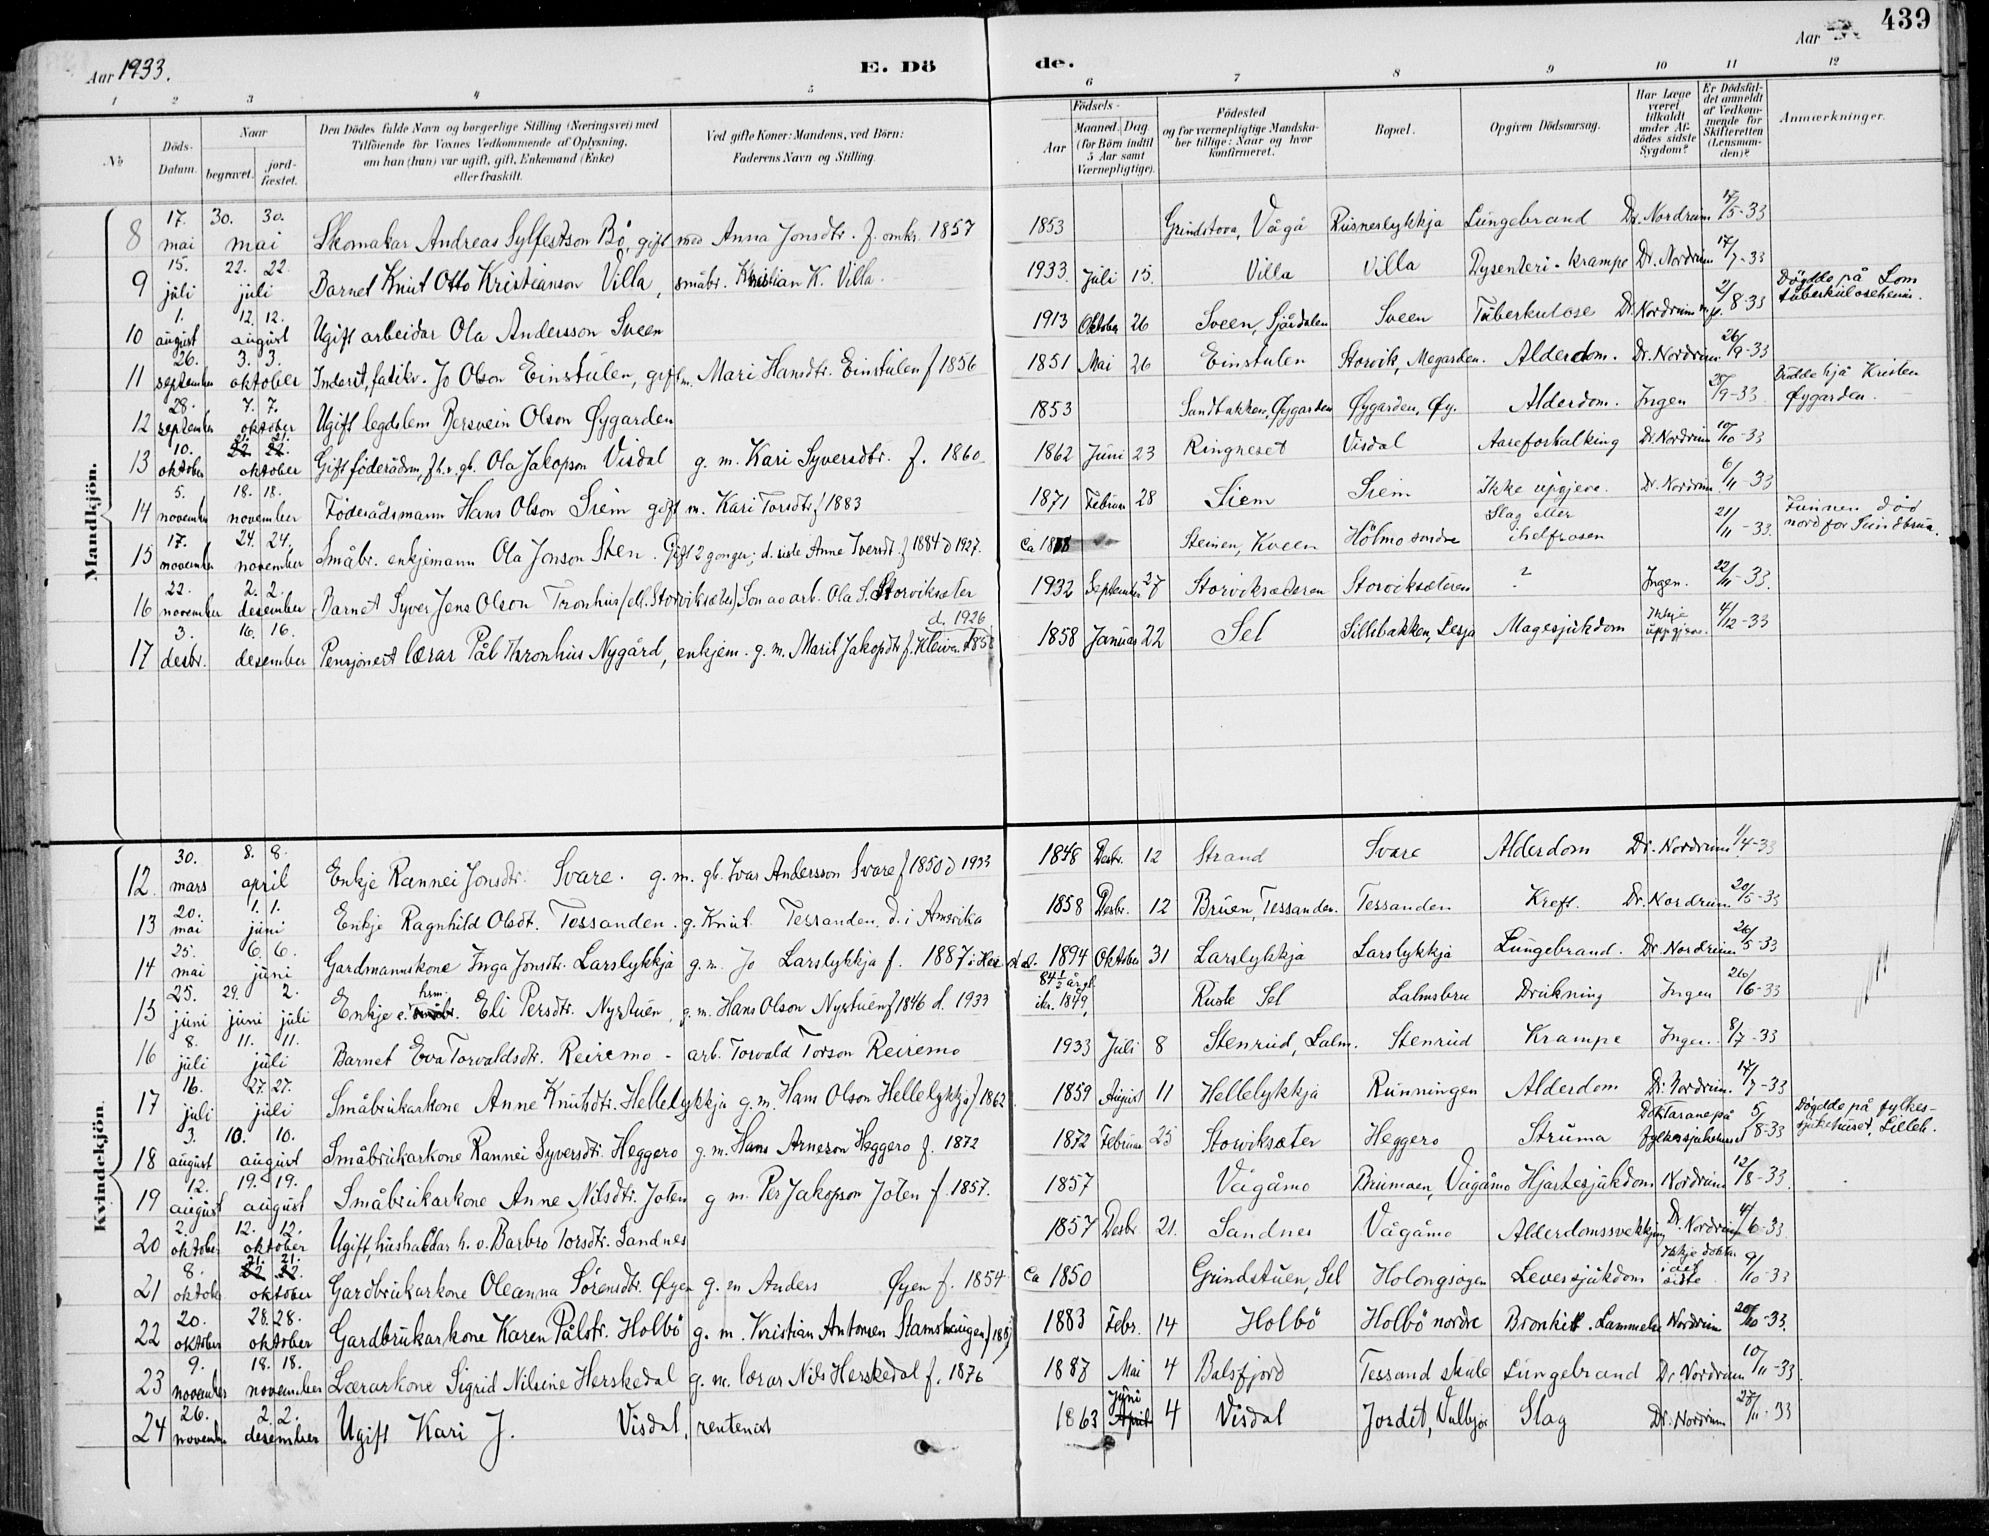 Aar 1933. E. Döde. Aar 439
1 2 3 4 5 6 7 8 9 10 11 12
No
Döds-Datum.
Naar begravet. jordfæstet.
Den Dödes fulde Navn og borgerlige Stilling (Næringsvei) med Tilföiende for Voxnes Vedkommende af Oplysning, om han (hun) var ugift, gift, Enkemand (Enke) eller fraskilt.
Ved gifte Koner: Mandens, ved Börn: Faderens Navn og Stilling.
Födsels-
Aar Maaned. Dag (for Börn indtil 5 Aar samt Værnepligtige).
Födested og for værnepligtige Mandskaber tillige: Naar og hvor konfirmeret.
Bopæl.
Opgiven Dödsaarsag.
Har Læge været tilkaldt under Afdödes sidste Sygdom?
Er Dödsfaldet anmeldt af Vedkommende for Skifteretten (Lensmanden)?
Anmærkninger.
Mandkjön.
8 17. mai 30. 30. mai Skomakar Andreas Sylfestson Bö, gift med Anna Jonsdtr. f. omkr. 1857 1853 Grindstova, Vågå Rusneslykkja Lungebrand Dr. Nordrum 17/5-33
9 15. juli 22. 22. juli Barnet Knut Otto Kristianson Villa, småbr. Kristian K. Villa. 1933. Juli 15. Villa Villa Dysenteri-krampe Dr. Nordrum 17/7-33
10 1. august 12. 12. august Ugift arbeidar Ola Andersson Sveen 1913 Oktober 26 Sveen, Sjårdalen Sveen Tuberkulose Dr. Nordrum 2/8-33 Döydde på Lom tuberkuloseheim.
11 26. september 3. 3. oktober Inderst, fatikv. Jo Olson Einstulen, gift m. Mari Hansdtr. Einstulen f 1856 1851 Mai 26 Einstulen Storvik, Megarden. Alderdom. Dr. Nordrum 26/9-33
12 28. september 7. 7. oktober Ugift legdslem Bersvein Olson Øygarden 1853 Sandbakken, Øygarden Øygarden, Øy. Alderdom. Ingen 28/9-33 Budde hjå Kristen Øygarden.
13 10. oktober 21. 21. oktober Gift föderådsm. f.h.v. gb. Ola Jakopson Visdal g. m. Kari Syversdtr. f. 1860 1862 Juni 23 Ringneset Visdal Aareforkalking Dr. Nordrum 10/10-33
14 5. november 18. 18. november Föderådsmann Hans Olson Siem gift m. Kari Torsdtr f 1883 1871 Februar 28 Siem Siem Ikke upgjeve. Dr. Nordrum 6/11-33
15 17. november 24. 24. november Småbr. enkjemann Ola Jonson Sten. Gift 2 gonger; d. siste Anne Iversdt. f 1884 d 1927. Ca Steinen, Kveen Hölmo söndre Slag eller ihelfrosen 21/11-33. Funnen död nord for Sundbrua.
16 22. november 2. 2. desember Barnet Syver Jens Olson Tronhus (ell. Storviksæter) Son av arb. Ola S. Storviksæter 1932 September 27 Storviksæteren Storviksæteren ? Ingen. 22/11-33.
17 3. desbr. 16. 16. desember Pensjonert lærar Pål Thronhus Nygård, enkjem. g. m. Marit Jakopdtr f. Kleiven 1858 d. 1926 1858 Januar 22 Sel Sillibakken, Lesja Magesjukdom Ikkje uppgjeve. 4/12-33
Kvindekjön.
12. 30. mars 8. 8. april Enkje Rannei Jonsdtr. Svare. g. m. gb. Ivar Andersson Svare f 1850 d 1933 1848 Desbr. 12 Strand Svare Alderdom Dr. Nordrum 1/4-33
13 20. mai 1. 1. juni Enkje Ragnhild Olsdt. Tessanden. g. Knut Tessanden. d. i Amerika 1858 Desbr. 12 Bruen, Tessanden. Tessanden Kreft. Dr. Nordrum 20/5-33
14 25. mai 6. 6. juni Gardmannskone Inga Jonsdtr. Larslykkja g. m. Jo Larslykkja f. 1887 i 1894 Oktober 31 Larslykkja Larslykkja Lungebrand. Dr. Nordrum 26/5-33
15 25. juni 29. juni 2. juli Enkje e. hsm. Eli Persdtr. Nystuen, g. m. Hans Olson Nystuen f 1846 d. 1933 84½ år gl. ikr. 1849, Ruste Sel Lalmsbru Drukning Ingen 26/6-33
16 8. juli 11. 11. juli Barnet Eva Torvaldsdtr. Reiremo - arb. Torvald Torson Reiremo 1933 Juli 8 Stenrud, Lalm. Stenrud Krampe Ingen. 8/7-33
17 16. juli 27. 27. juli Småbrukarkone Anne Knutsdtr. Hellelykkja g. m. Hans Olson Hellelykkja f 1862. 1859 August 11 Hellelykkja Runningen Alderdom Dr. Nordrum. 17/7-33
18 3. august 10. 10. august Småbrukarkone Rannei Syversdtr. Heggero g. m. Hans Arneson Heggero f. 1872 1872 Februar 25 Storviksæter Heggero Struma Doktarane på fylkessjukehuset 5/8-33 Döydde på fylkessjukehuset, Lilleh.
19 12. august 19. 19. august Småbrukarkone Anne Nilsdtr. Joten g. m. Per Jakopson Joten f. 1857. 1857 Vågåmo Brumoen, Vågåmo Hjartesjukdom Nordrum 12/8-33.
20 2. oktober 12. 12. oktober Ugift, hushaldar h. v. Barbro Torsdtr. Sandnes 1857 Desbr 21. Sandnes Vågåmo Alderdomssvekkjing Dr. Nordrum 4/6-33
21 8. oktober 21. 21. oktober Gardbrukarkone Oleanna Sörensdtr. Øyen g. m Anders Øyen f. 1854 Ca 1850 Grindstuen, Sel Holongsøyen Leversjukdom Ikkje doktar i det siste 9/10-33
22 20. oktober 28. 28. oktober Gardbrukarkone Karen Pålstr. Holbö g. m. Kristian Antonsen Stamsteingen 1883 Febr. 14 Holbö Holbö nordre Bronkitt. Lammelse Nordrum 20/10-33.
23 9. november 18. 18. november Lærarkone Sigrid Nilsine Herskedal g. m. lærar Nils Herskedal f. 1876 1887 Mai 4 Balsfjord Tessand skule Lungebrand Dr. Nordrum 10/11-33.
24 26. november 2. 2. desember Ugift Kari J. Visdal, rentenist 1863 Juni 4 Visdal Jordet, Slag Dr. Nordrum 27/11-33